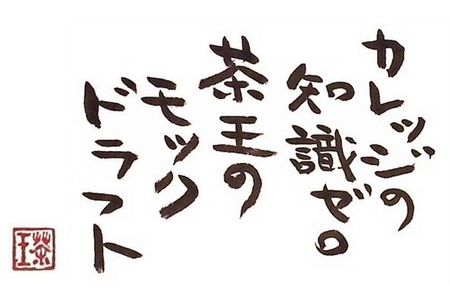 カレッジの
知識ゼロ
茶王の
モック
ドラフト
茶王